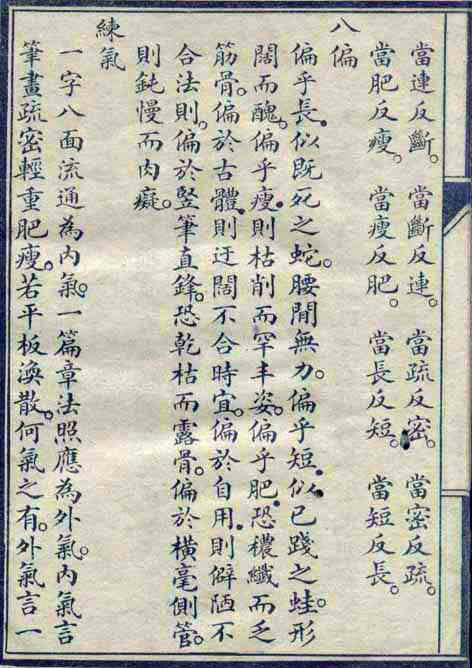 當連反斷。當斷反連。當疏反密。當密反疏。
當肥反瘦。當瘦反肥。當長反短。當短反長。
八偏
偏乎長。似既死之蛇。腰閒無力。偏乎短。似已踐之蛙。形
闊而醜。偏乎瘦。則枯削而罕丰姿。偏乎肥。恐穠纖而乏
筋骨。偏於古體。則迂闊不合時宜。偏於自用。則僻陋不
合法則。偏於豎筆直鋒。恐乾枯而露骨。偏於橫毫側管。
則鈍慢而肉癡。
練氣
一字八面流通為內氣。一篇章法照應為外氣。內氣言
筆畫疏密輕重肥瘦。若平板渙散。何氣之有。外氣言一